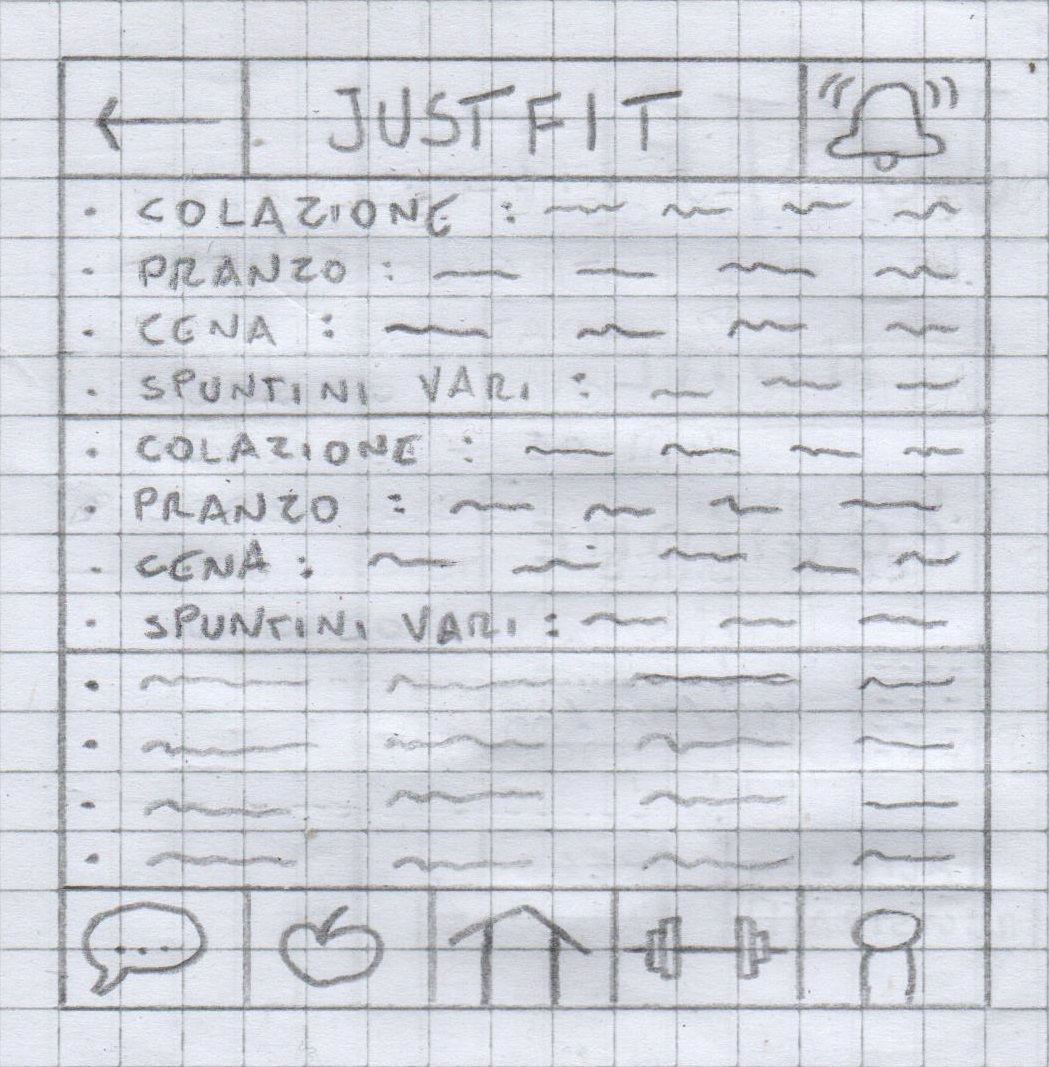 JUSTFIT
• COLAZIONE :
• PRANZO :
• CENA :
• SPUNTINI VARI :
• COLAZIONE :
• PRANZO :
• CENA :
• SPUNTINI VARI :